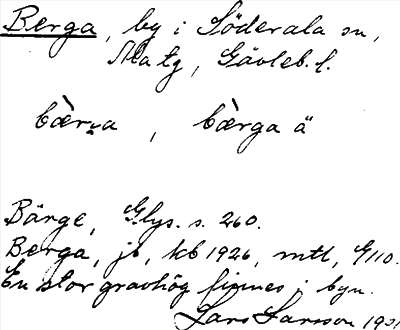 Berga, by i Söderala sn,
Ala tg, Gävleb. l.
bærga, bærga ä
Bärge, Glys. s. 260.
Berga, jb, kb 1926, mtl, G110.
En stor gravhög finnes i byn.
Lars Larsson